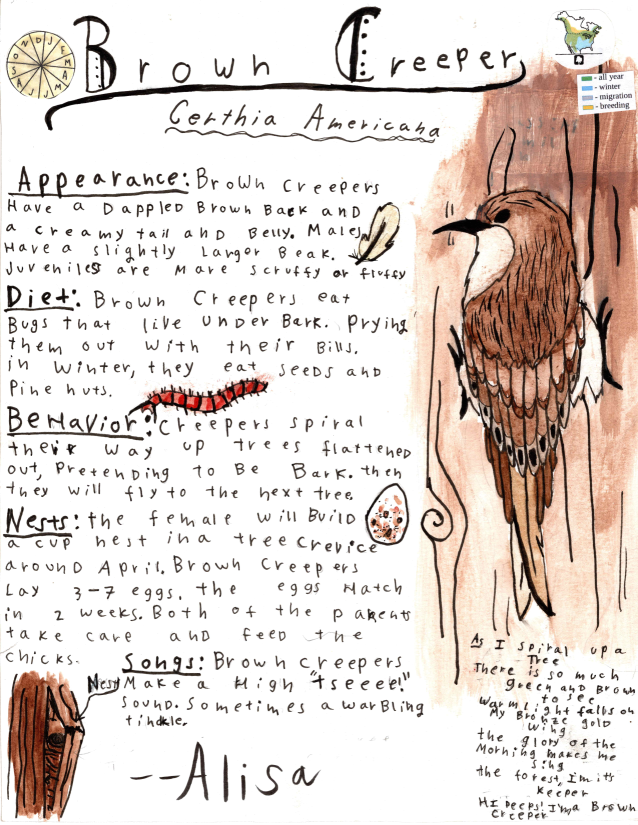 Brown Creeper
Certhia Americana
J F M A M J J A S O N D
- all year
- winter
- migration
- breeding
Appearance: Brown Creepers
Have a Dappled Brown Back and
a creamy tail and Belly. Males
Have a slightly Larger Beak.
Juveniles are More scruffy or fluffy
Diet: Brown Creepers eat
Bugs that live under Bark. Prying
them out with their Bills.
in Winter, they eat seeds and
Pine nuts.
Behavior: Creepers spiral
their way up trees flattened
out, Pretending to Be Bark. then
they will fly to the next tree.
Nests: the female will Build
a cup nest in a tree crevice
around April. Brown Creepers
Lay 3-7 eggs. the eggs Hatch
in 2 weeks. Both of the parents
take care and feed the
chicks.
Songs: Brown creepers
Make a High "tseeee!"
Sound. Sometimes a warbling
tinkle.
Nest
--Alisa
As I spiral up a
Tree
There is so much
green and Brown
to see
Warm Light falls on
My Bronze gold
wing
the glory of the
Morning makes me
sing
the forest, I'm its
keeper
Hi peeps! I'm a Brown
Creeper